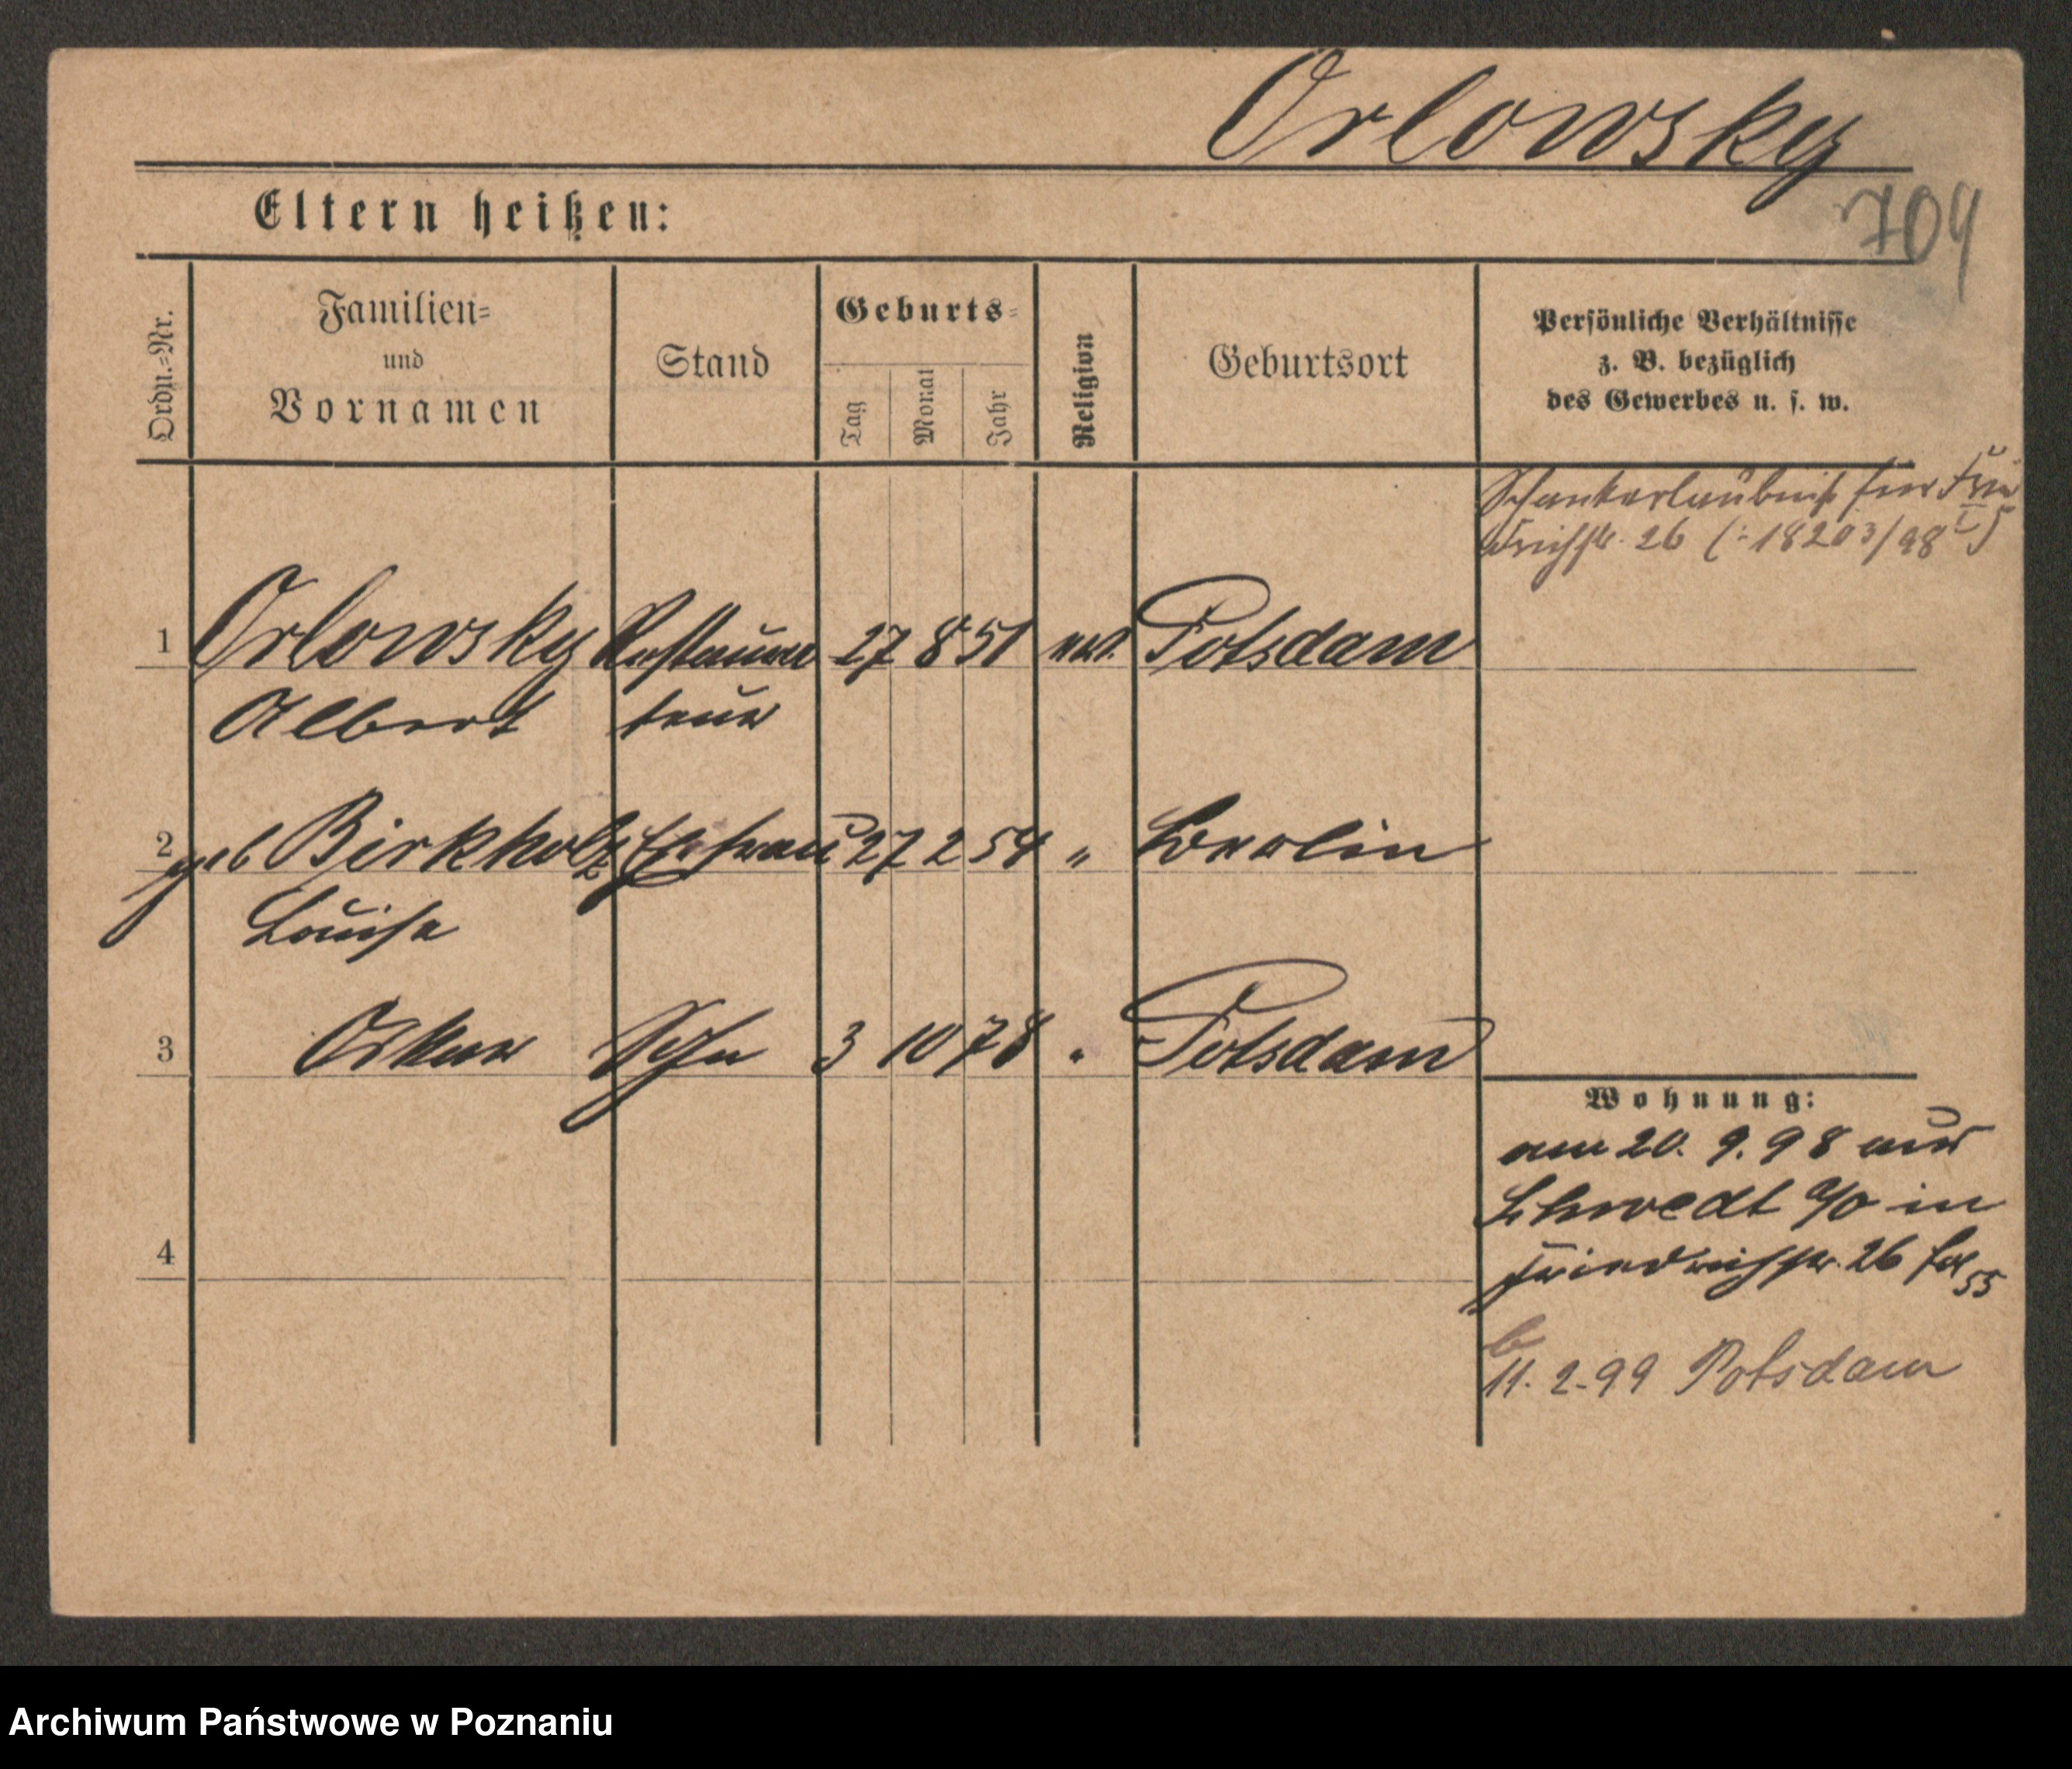 Orlowsky
709
Eltern heißen:
Ordn.-Nr.
Familien-
und
Vornamen
Stand
Geburts-
Tag
Monat
Jahr
Religion
Geburtsort
Persönliche Verhältnisse
z. B. bezüglich
des Gewerbes u. s. w.
Schankerlaubniß für Frie
drichstr. 26 (: 18203/98
1 Orlowsky Restaura 27 8 51 ev. Potsdam
Albert teur
2 geb Birkholz Ehefrau 27 2 54 " Berlin
Louise
3 Oskar Sohn 3 10 78 " Potsdam
Wohnung:
am 20. 9. 98 aus
Schwedt a/O in
Friedrichstr. 26 55
11. 2. 99 Potsdam
4
Archiwum Państwowe w Poznaniu